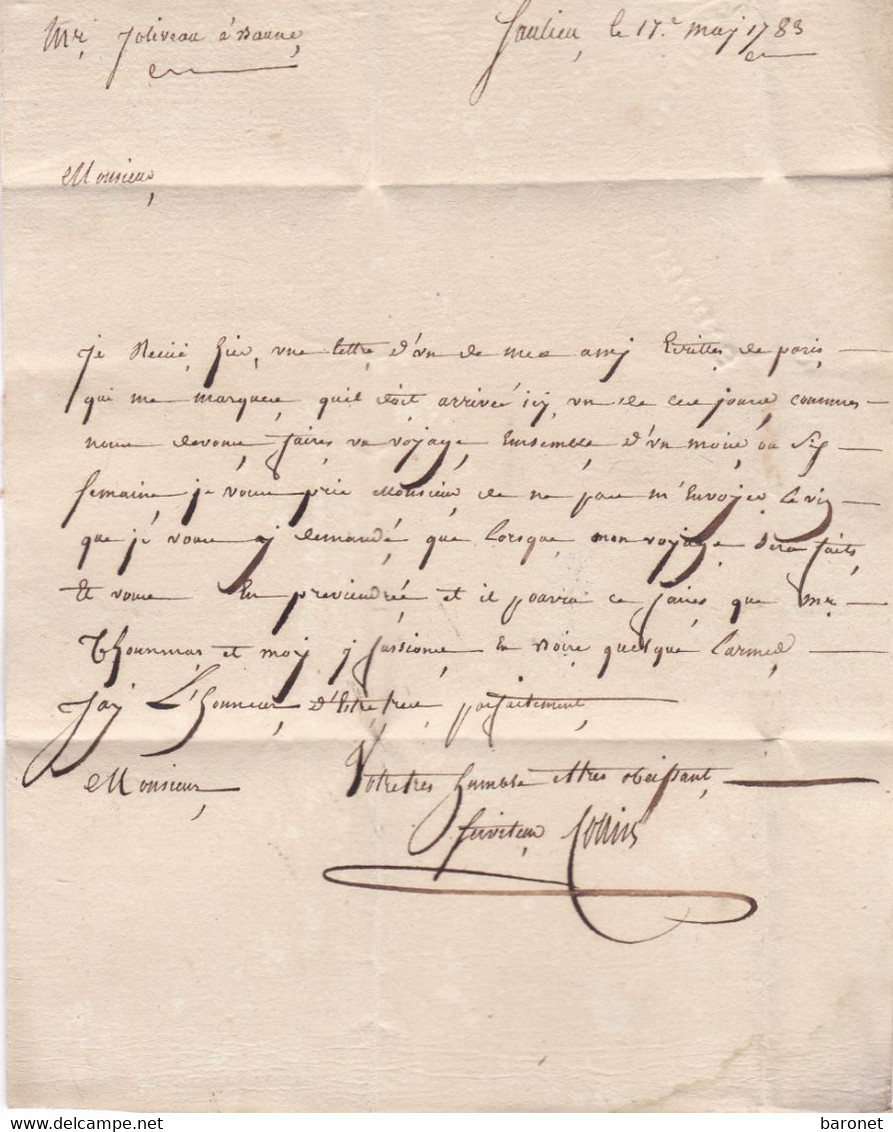 Mr. Joliveau à Baune,
Saulieu, le 17e. maj 1783
Monsieur,
Je Recüë hier, une lettre, d'un de mes amj Ecrittes de paris
qui me marques, quil doit arrivée icy, un de ces jours, commes
nous devons, faires un voyage, Ensemble, d'un mois, ou Six
semaine, je vous prie Monsieur de ne pas m'Envoyer Le vin
que je vous aj demandé, que Lorsque mon voyage, sera faits,
Et vous En previendrée et il pourrai ce faires que Mr.
Thounmas et moy j fassions, En Boire quelque Larmes
Jaj L'honneur, D'Estre tres parfaitement,
Monsieur,
Votre tres humble et tres obeissant,
serviteur Collin
baronet